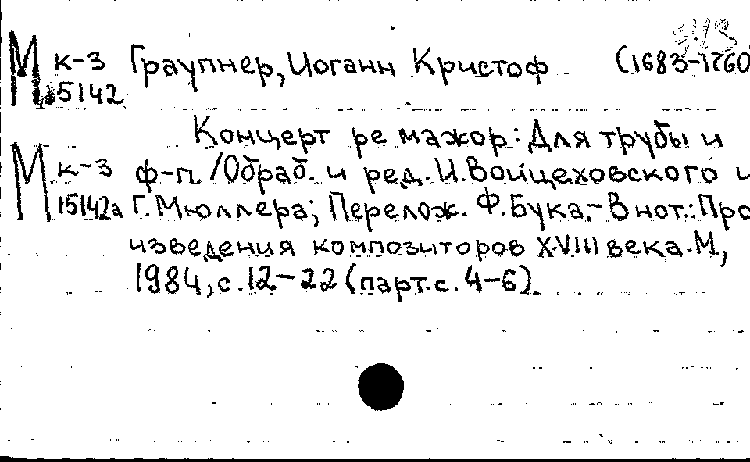 М к-3 Граупнер, Иоганн Кристоф (1683-1760)
15142
Концерт ре мажор: Для трубы и
М к-3 ф-п. /Обраб. и ред. И. Войцеховского и
15142а Г. Мюллера; Перелож. Ф. Бука.- В нот.: Про
изведения композиторов XVIII века. М,
1984, с. 12-22 (парт. с. 4-6).